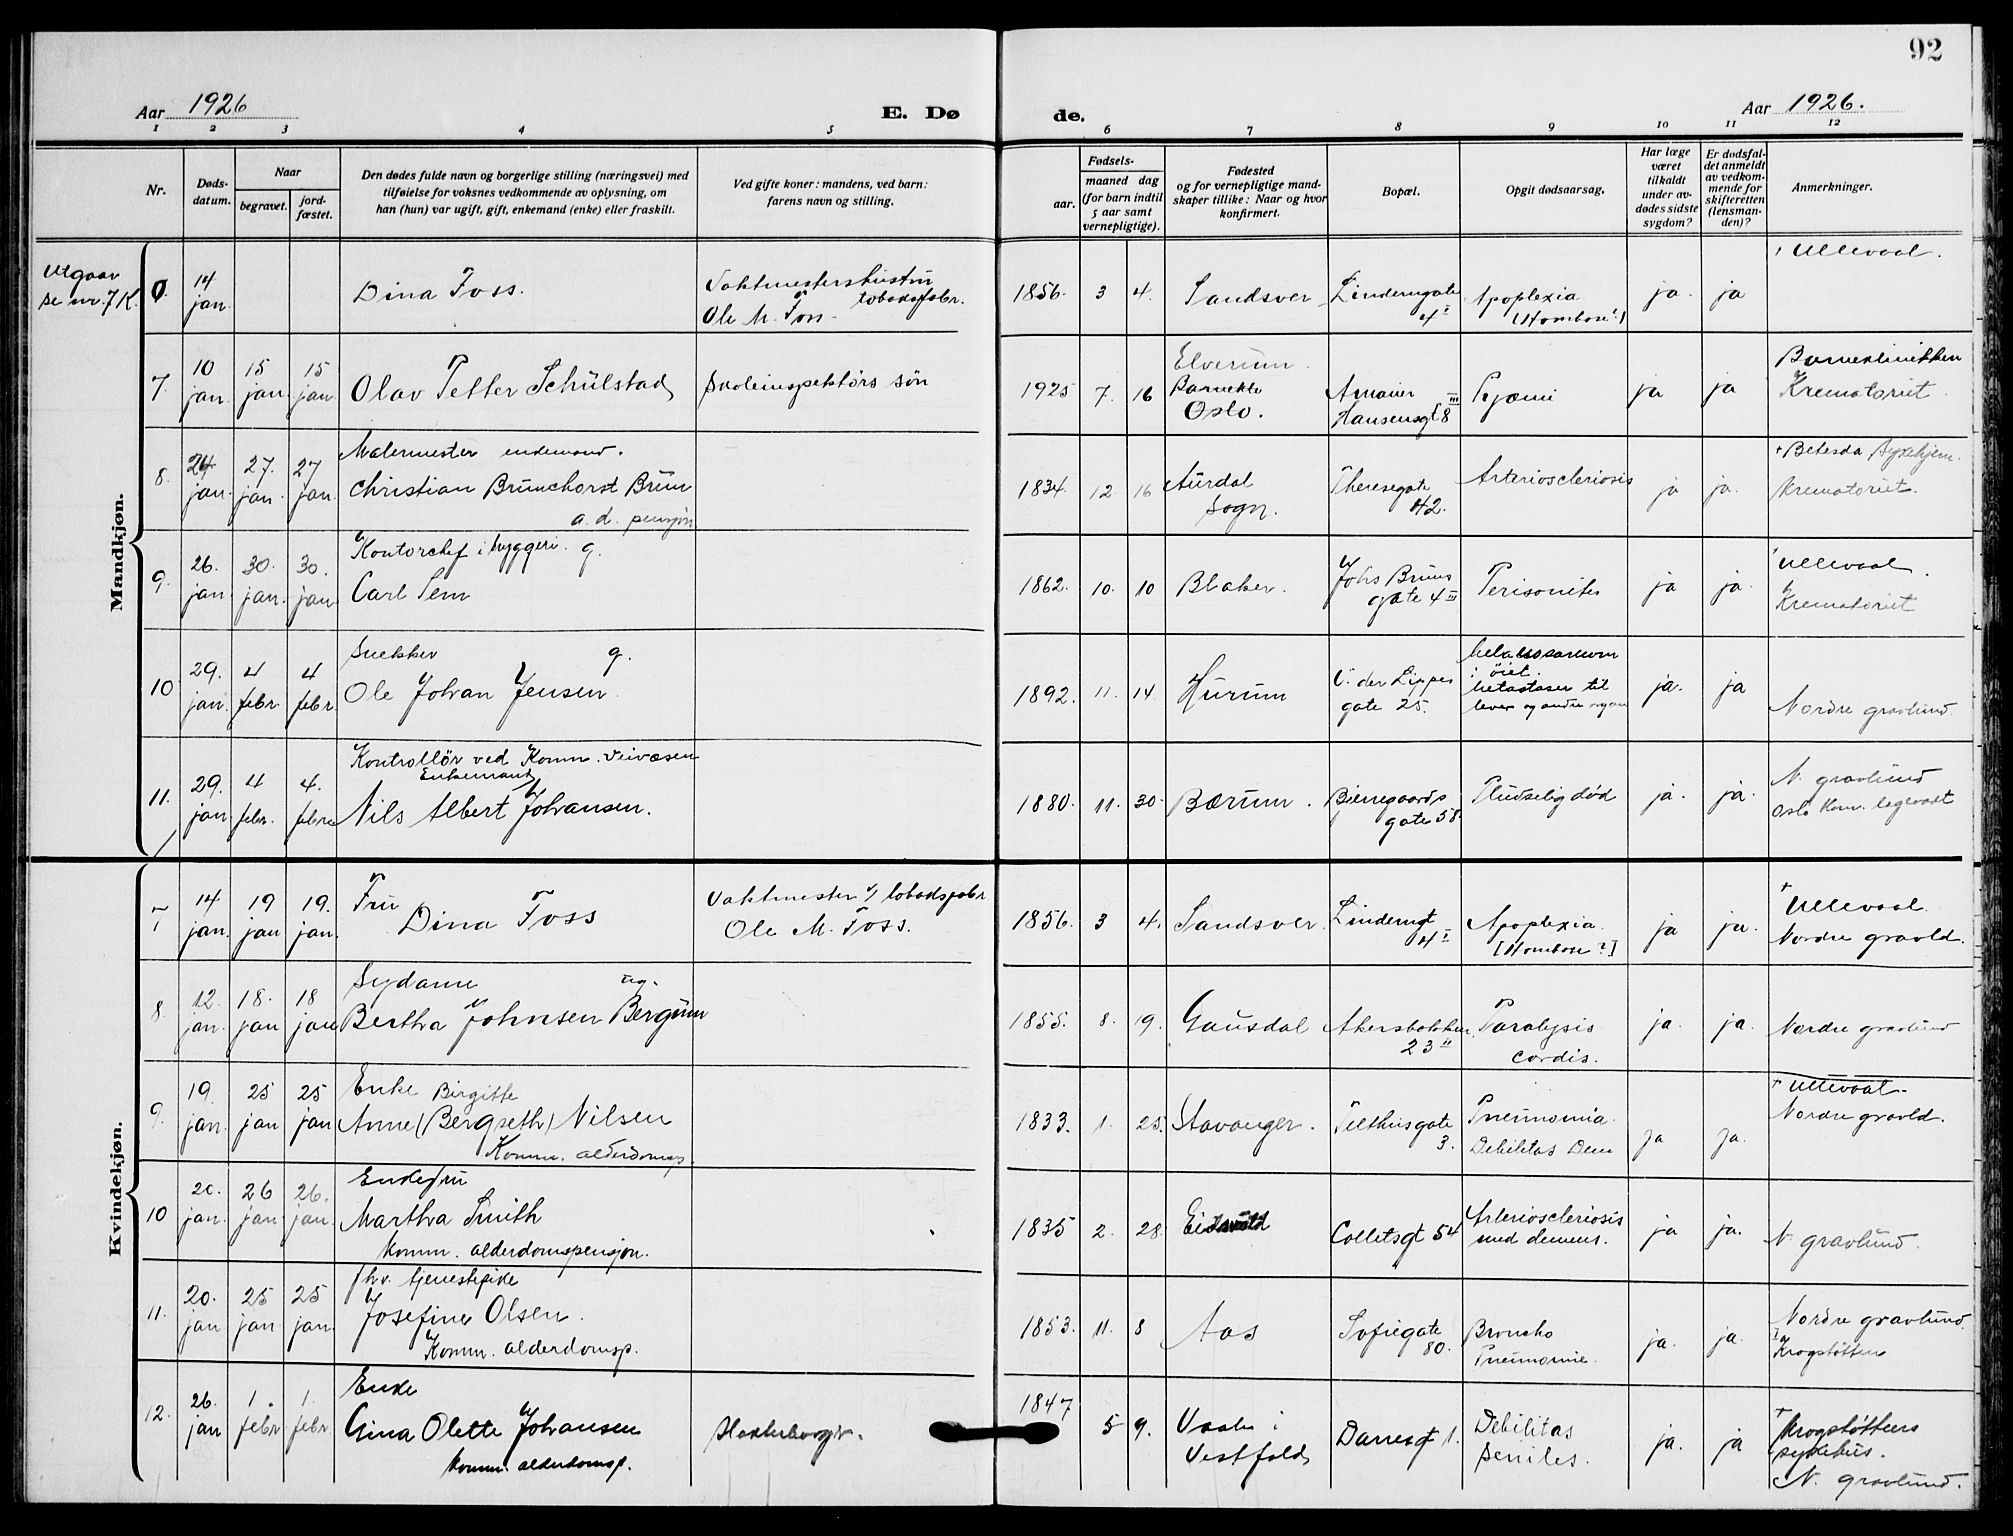 92
Aar 1926
E. Dø
de.
Aar 1926.
1 2 3 4 5 6 7 8 9 10 11 12
Nr.
Døds-
datum.
Naar
begravet.
jord-
fæstet.
Den dødes fulde navn og borgerlige stilling (næringsvei) med
tilføielse for voksnes vedkommende av oplysning, om
han (hun) var ugift, gift, enkemand (enke) eller fraskilt.
Ved gifte koner: mandens, ved barn:
farens navn og stilling.
Fødsels-
aar.
maaned dag
(for barn indtil
5 aar samt
vernepligtige).
Fødested
og for vernepligtige mand-
skaper tillike: Naar og hvor
konfirmert.
Bopæl.
Opgit dødsaarsag.
Har læge
været
tilkaldt
under av-
dødes sidste
sygdom?
Er dødsfal-
det anmeldt
av vedkom-
mende for
skifteretten
(lensman-
den)?
Anmerkninger.
Mandkjøn.
Utgaar
se nr. 7 K.
14
jan.
Dina Foss.
Vaktmestershustru
tobaksfabr.
Ole M. Foss.
1856. 3 4.
Sandsver
Linderngate
4 I
Apoplexia
ja. ja
Ullevaal.
7.
10 jan.
15 jan.
15 jan
Olav Petter Schülstad
Skoleinspektørs søn
1925 7. 16
Elverum.
Oslo.
Amaier
Hansensgt 8 III
Pyæmi
ja ja
Barneklinikken
Krematoriet.
8.
24 jan.
27. jan.
27 jan.
Malermester enkemand.
Christian Brunchorst Brun
a. d. pensjon
1834. 12. 16
Aurdal
Sogn.
Theresegate
42.
Arteriosclerosis
ja ja.
+ Betesda Sykehjem.
Krematoriet.
9.
26. jan
30. jan.
30. jan
Kontorchef i byggeri. g.
Carl Sem
1862. 10. 10
Blaker.
Johs Bruns
gate 4 III
Peritonites
ja ja.
Ullevaal.
Krematoriet
10
29. jan.
4 febr.
4 febr
Snekker g.
Ole Johan Jensen.
1892. 11. 14
Hurum
V. der Lippes
gate 25.
Melanosarcom
i öiet.
Metastaser til
lever og andre organ
ja. ja
Nordre gravlund.
11.
29. jan
4 febr.
4. febr.
Kontrollör ved Komm. Veivæsen
Enkemand
Nils Albert Johansen.
1880. 11. 30.
Bærum.
Bjerregaards
gate 58.
Pludselig död
ja. ja.
N. gravlund
Oslo Kom. legevakt
Kvindekjøn.
7
14 jan.
19 jan
19. jan.
Fru
Dina Foss
Vaktmester v/ tobaksfabr
Ole M. Foss.
1856. 3 4.
Sandsver.
Linderngt
4 I
Apoplexia.
ja ja.
Ullevaal.
Nordre gravld.
8.
12. jan.
18. jan
18 jan
Sydame ug.
Bertha Johnsen Bergum
1855. 8. 19.
Gausdal
Akersbakken
23 II
Paralysis
cordis.
ja. ja.
Nordre gravlund
9.
19. jan.
25 jan
25 jan
Enke Birgitte
Anne (Bergseth) Nilsen
Komm. alderdomsp.
1833. 1. 25.
Stavanger.
Pilthusgate
3.
Pneumonia.
Debilitas
ja ja.
+ Ullevaal.
Nordre gravld.
10
20. jan.
26 jan
26. jan.
Enkefru
Martha Smith
Komm. alderdomspensjon.
1835 2. 28.
Eidsvold
Colletsgt 54
Arteriosclerosis
med demens.
ja ja.
N. gravlund.
11.
20. jan
25 jan
25 jan.
fhv. tjenestepike
Josefine Olsen.
Komm. alderdomsp.
1853. 11. 8
Aas
Sofiegate
80.
Broncho
Pneumonie.
ja. ja.
Nordre gravlund.
Krogstøtten
12.
26. jan
1. febr
1. febr
Enke
Gina Olette Johansen
Komm. alderdomsp.
1847 5 9.
Vaale i
Vestfold
Darresgt 1.
Debilitas
seniles.
ja. ja
Krogstøttens
sykehus.
N. gravlund.